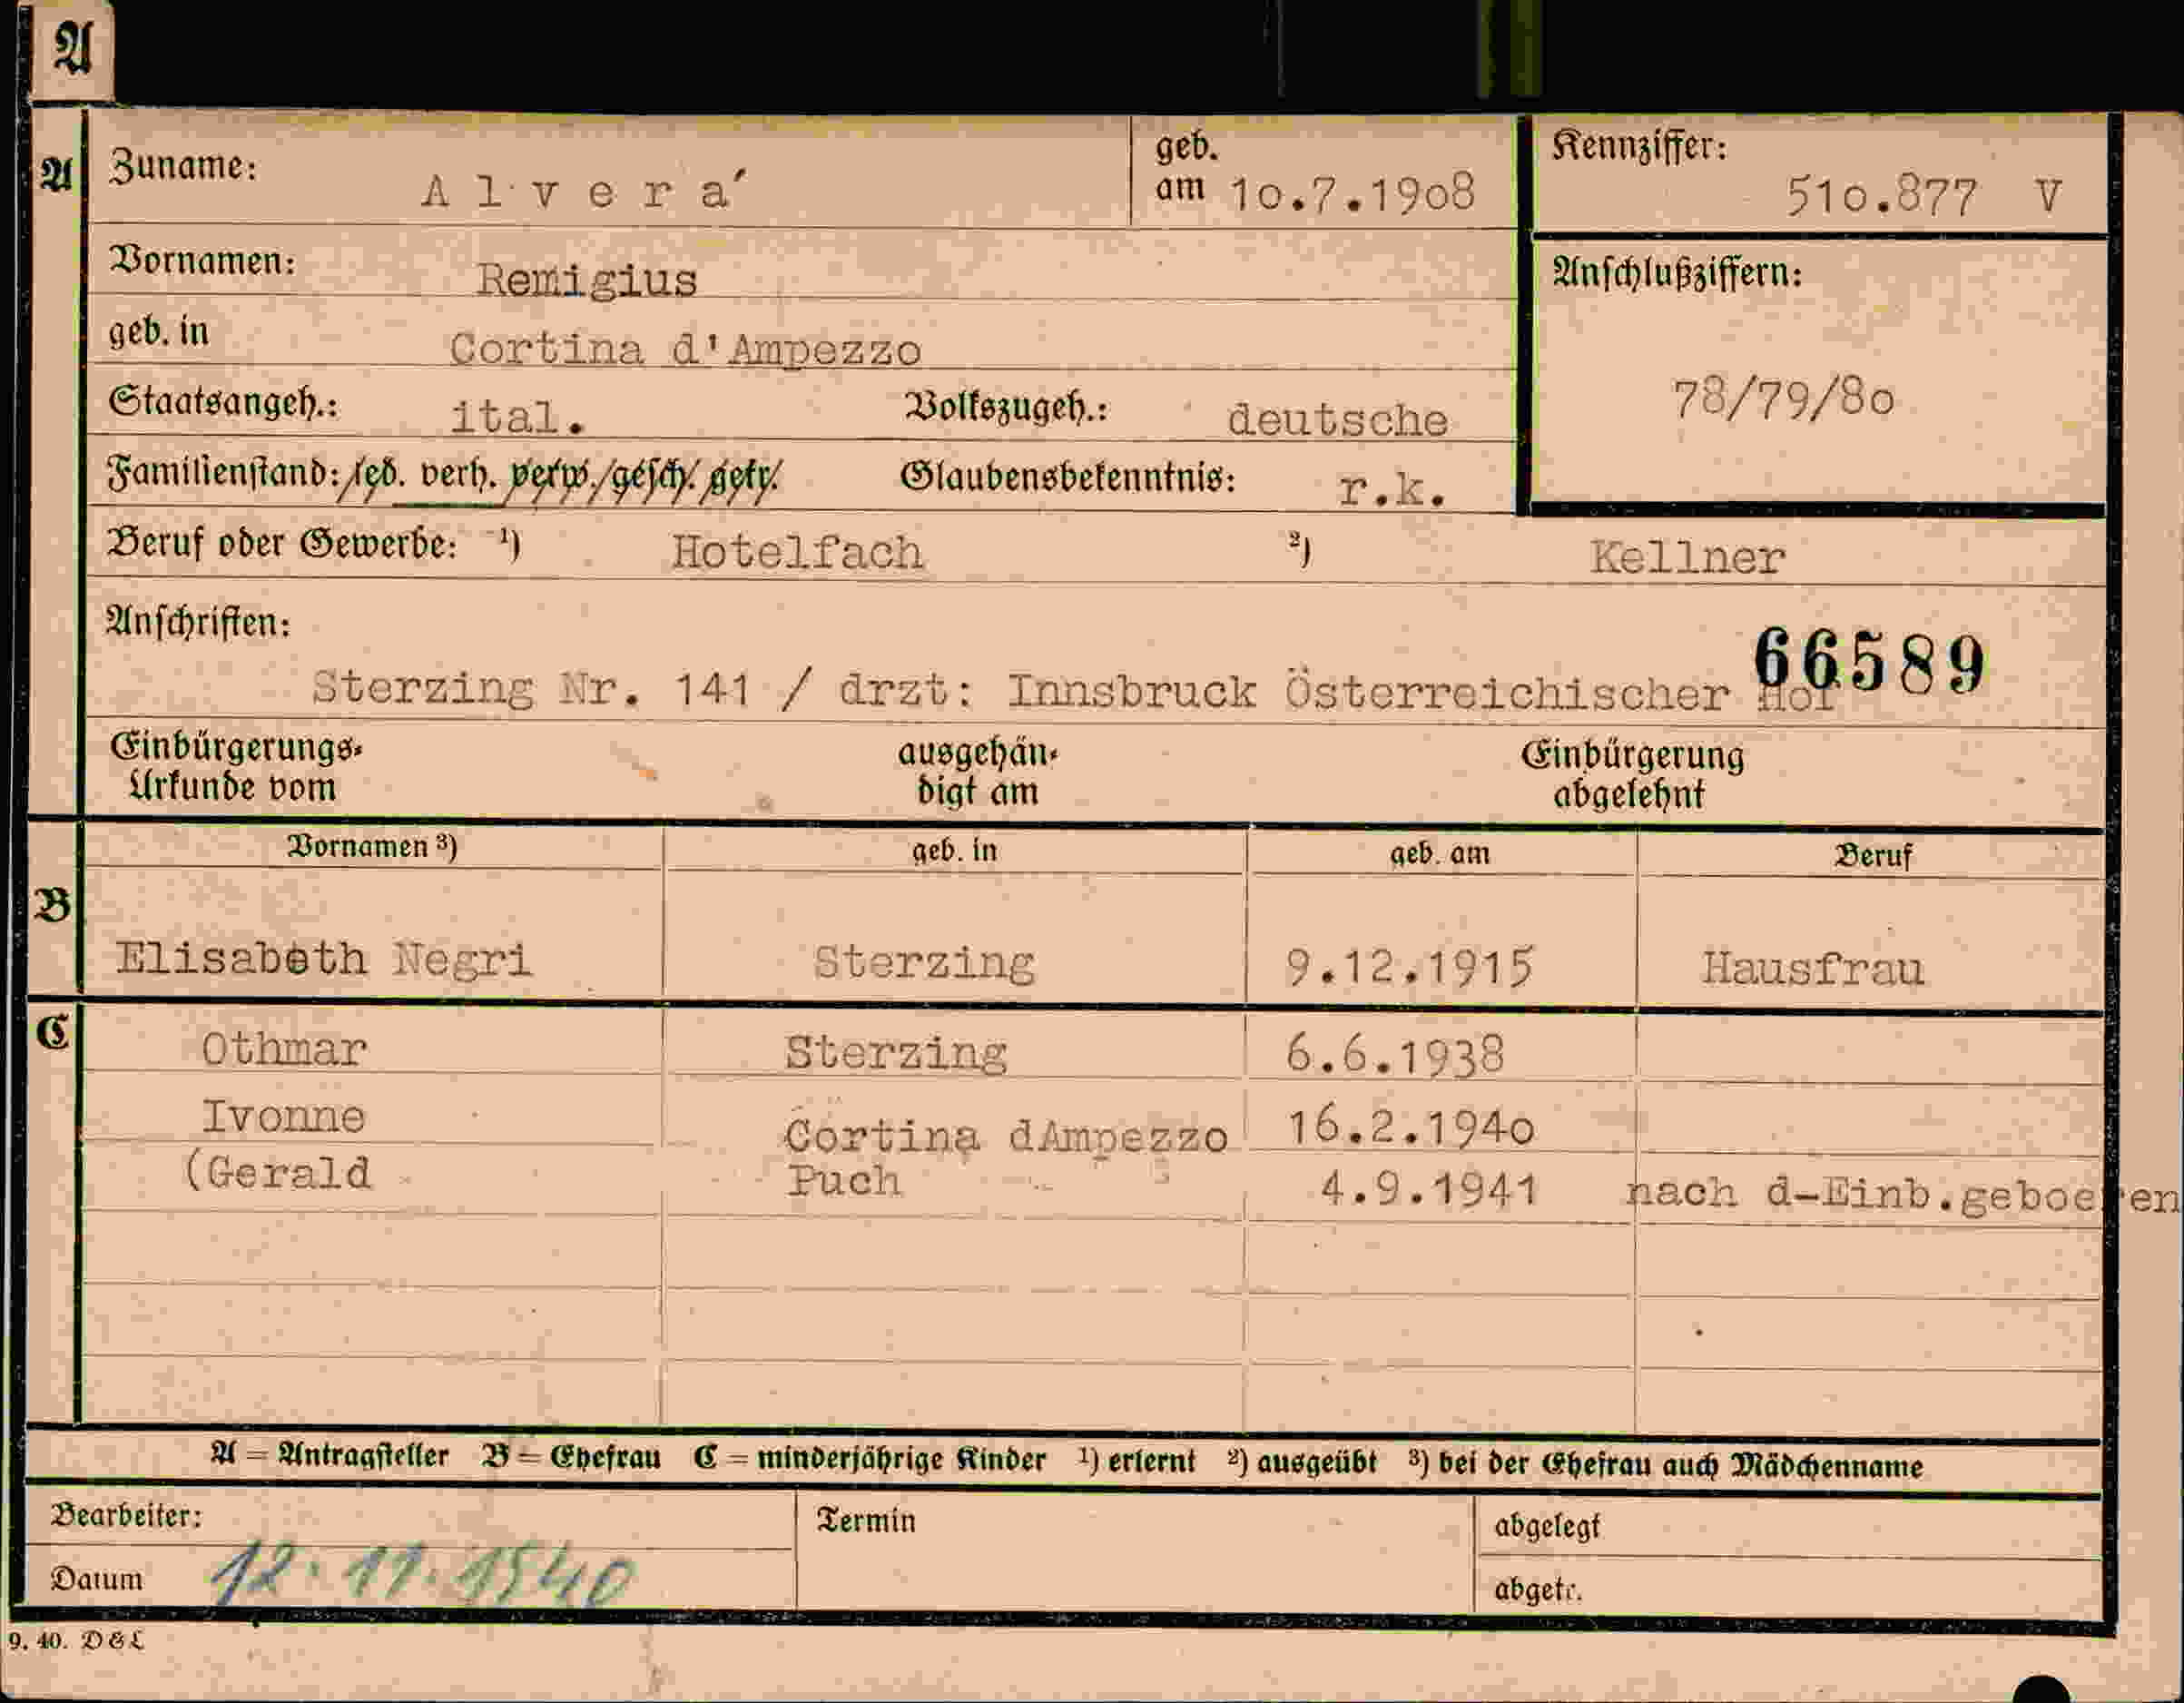 A
A
Zuname: Alvera´ geb. am 10.7.1908 Kennziffer: 510.877 V
Vornamen: Remigius Anschlußziffern:
geb. in Cortina d'Ampezzo
78/79/80
Staatsangeh.: ital. Volkszugeh.: deutsche
Familienstand: led. verh. verw. gesch. getr. Glaubensbekenntnis: r.k.
Beruf oder Gewerbe: ¹) Hotelfach ²) Kellner
Anschriften:
66589
Sterzing Nr. 141 / drzt: Innsbruck Österreichischer Hof
Einbürgerungs- ausgehän- Einbürgerung
Urkunde vom digt am abgelehnt
Vornamen ³) geb. in geb. am Beruf
B
Elisabeth Negri Sterzing 9.12.1915 Hausfrau
C
Othmar Sterzing 6.6.1938
Ivonne Cortina dAmpezzo 16.2.1940
(Gerald Puch 4.9.1941 nach d-Einb.geboeren
A = Antragsteller B = Ehefrau C = minderjährige Kinder ¹) erlernt ²) ausgeübt ³) bei der Ehefrau auch Mädchenname
Bearbeiter: Termin abgelegt
Datum 12.11.1940 abgetr.
9. 40. D & L